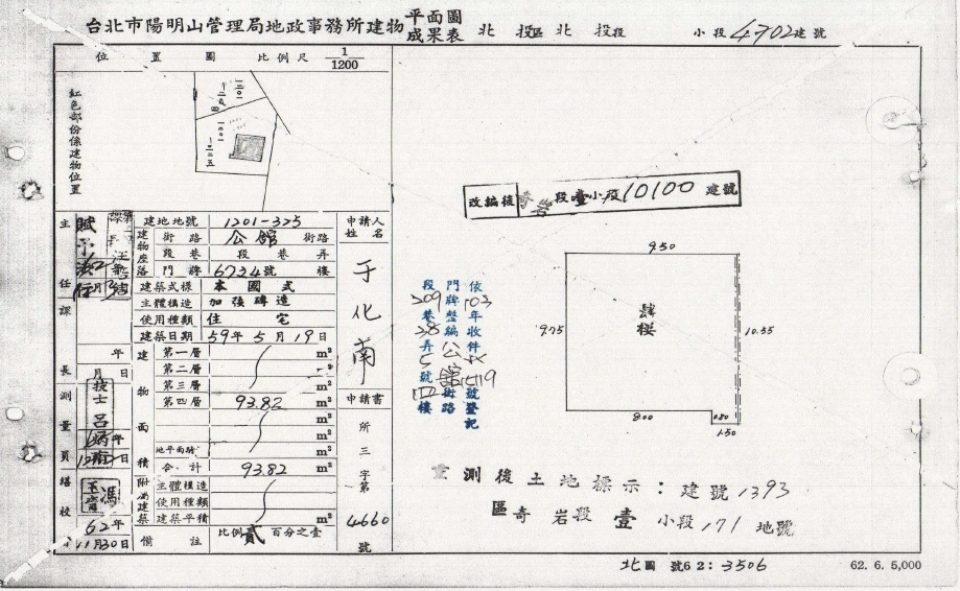 台北市陽明山管理局地政事務所建物平面圖成果表 北投區 北投段 小段 4702 建號
位置圖 比例尺 1/1200
紅色部份係建物位置
改編後 段壹小段 10100 建號
建地地號 1201-325
建物座落 街路 公館 街路
段巷 段 巷 弄
門牌 6734號 樓
建築式樣 本國式
主體構造 加強磚造
使用種類 住宅
建築日期 59年5月19日
建物面積
第一層 m²
第二層
第三層 m²
第四層 93.82 m²
m²
m²
地平面騎 m²
合計 93.82 m²
附屬建築
主體構造
使用種類
建築平積 m²
備註 比例貳百分之壹
申請人姓名
于化南
申請書
所三字第
4660
號
主任
課長
年
月 日
測量員
技士呂
堪校
馮
62年
11月30日
9.50
9.75
10.35
8.00
.80
1.50
樓
依103年收件 號登記
門牌整編公館街路
段209巷28弄5號 樓
重測後土地標示：建號1393
區奇岩段壹小段171地號
北圖 號62：3506
62. 6. 5,000